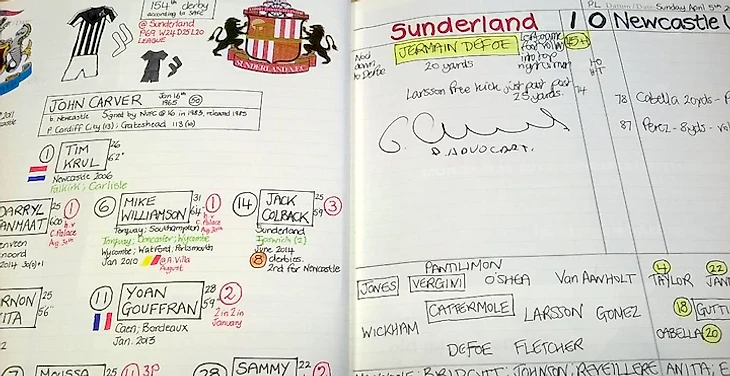 154th derby
according to SAFC
@ Sunderland
P69 W24 D25 L20
LEAGUE
SUNDERLAND A.F.C.
JOHN CARVER Jan 16th
1965 50
b. Newcastle Signed by NUFC @ 16 in 1983, released 1985
P. Cardiff City (13); Gateshead 113 (10)
1 TIM
KRUL 26
6'2"
Newcastle 2006
Falkirk; Carlisle
DARRYL
JANMAAT 25
1
C. Palace
Aug 30th
6 MIKE
WILLIAMSON 31
6'4"
1
C. Palace
Aug 30th
Torquay; Southampton
Torquay; Doncaster; Wycombe
Wycombe; Watford; Portsmouth
Jan 2010
@ A. Villa
August
14 JACK
COLBACK 25
5'9"
3
Sunderland
Ipswich (2)
June 2014
8 derbies.
2nd for Newcastle
25
5'6"
11 YOAN
GOUFFRAN 28
5'9"
2
2 in 2 in
January
Caen; Bordeaux
Jan. 2013
MOUSSA 25
11 3P
28 SAMMY 22
2
PL Sunday April 5th
Sunderland 1 0 Newcastle
JERMAIN DEFOE
45+1
20 yards
left foot volley
into top
right corner
Nod
down
to Defoe
HO
HT
Larsson free kick just past post
25 yards.
74
78 Cabella 20yds -
87 Perez - 8yds -
D. ADVOCAAT.
PANTILIMON
JONES VERGINI O'SHEA Van AANHOLT
CATTERMOLE LARSSON GOMEZ
WICKHAM
DEFOE FLETCHER
4 22
TAYLOR
18 GUTI
CABELLA 20
BRIDCUTT; JOHNSON; REVEILLERE ANITA;